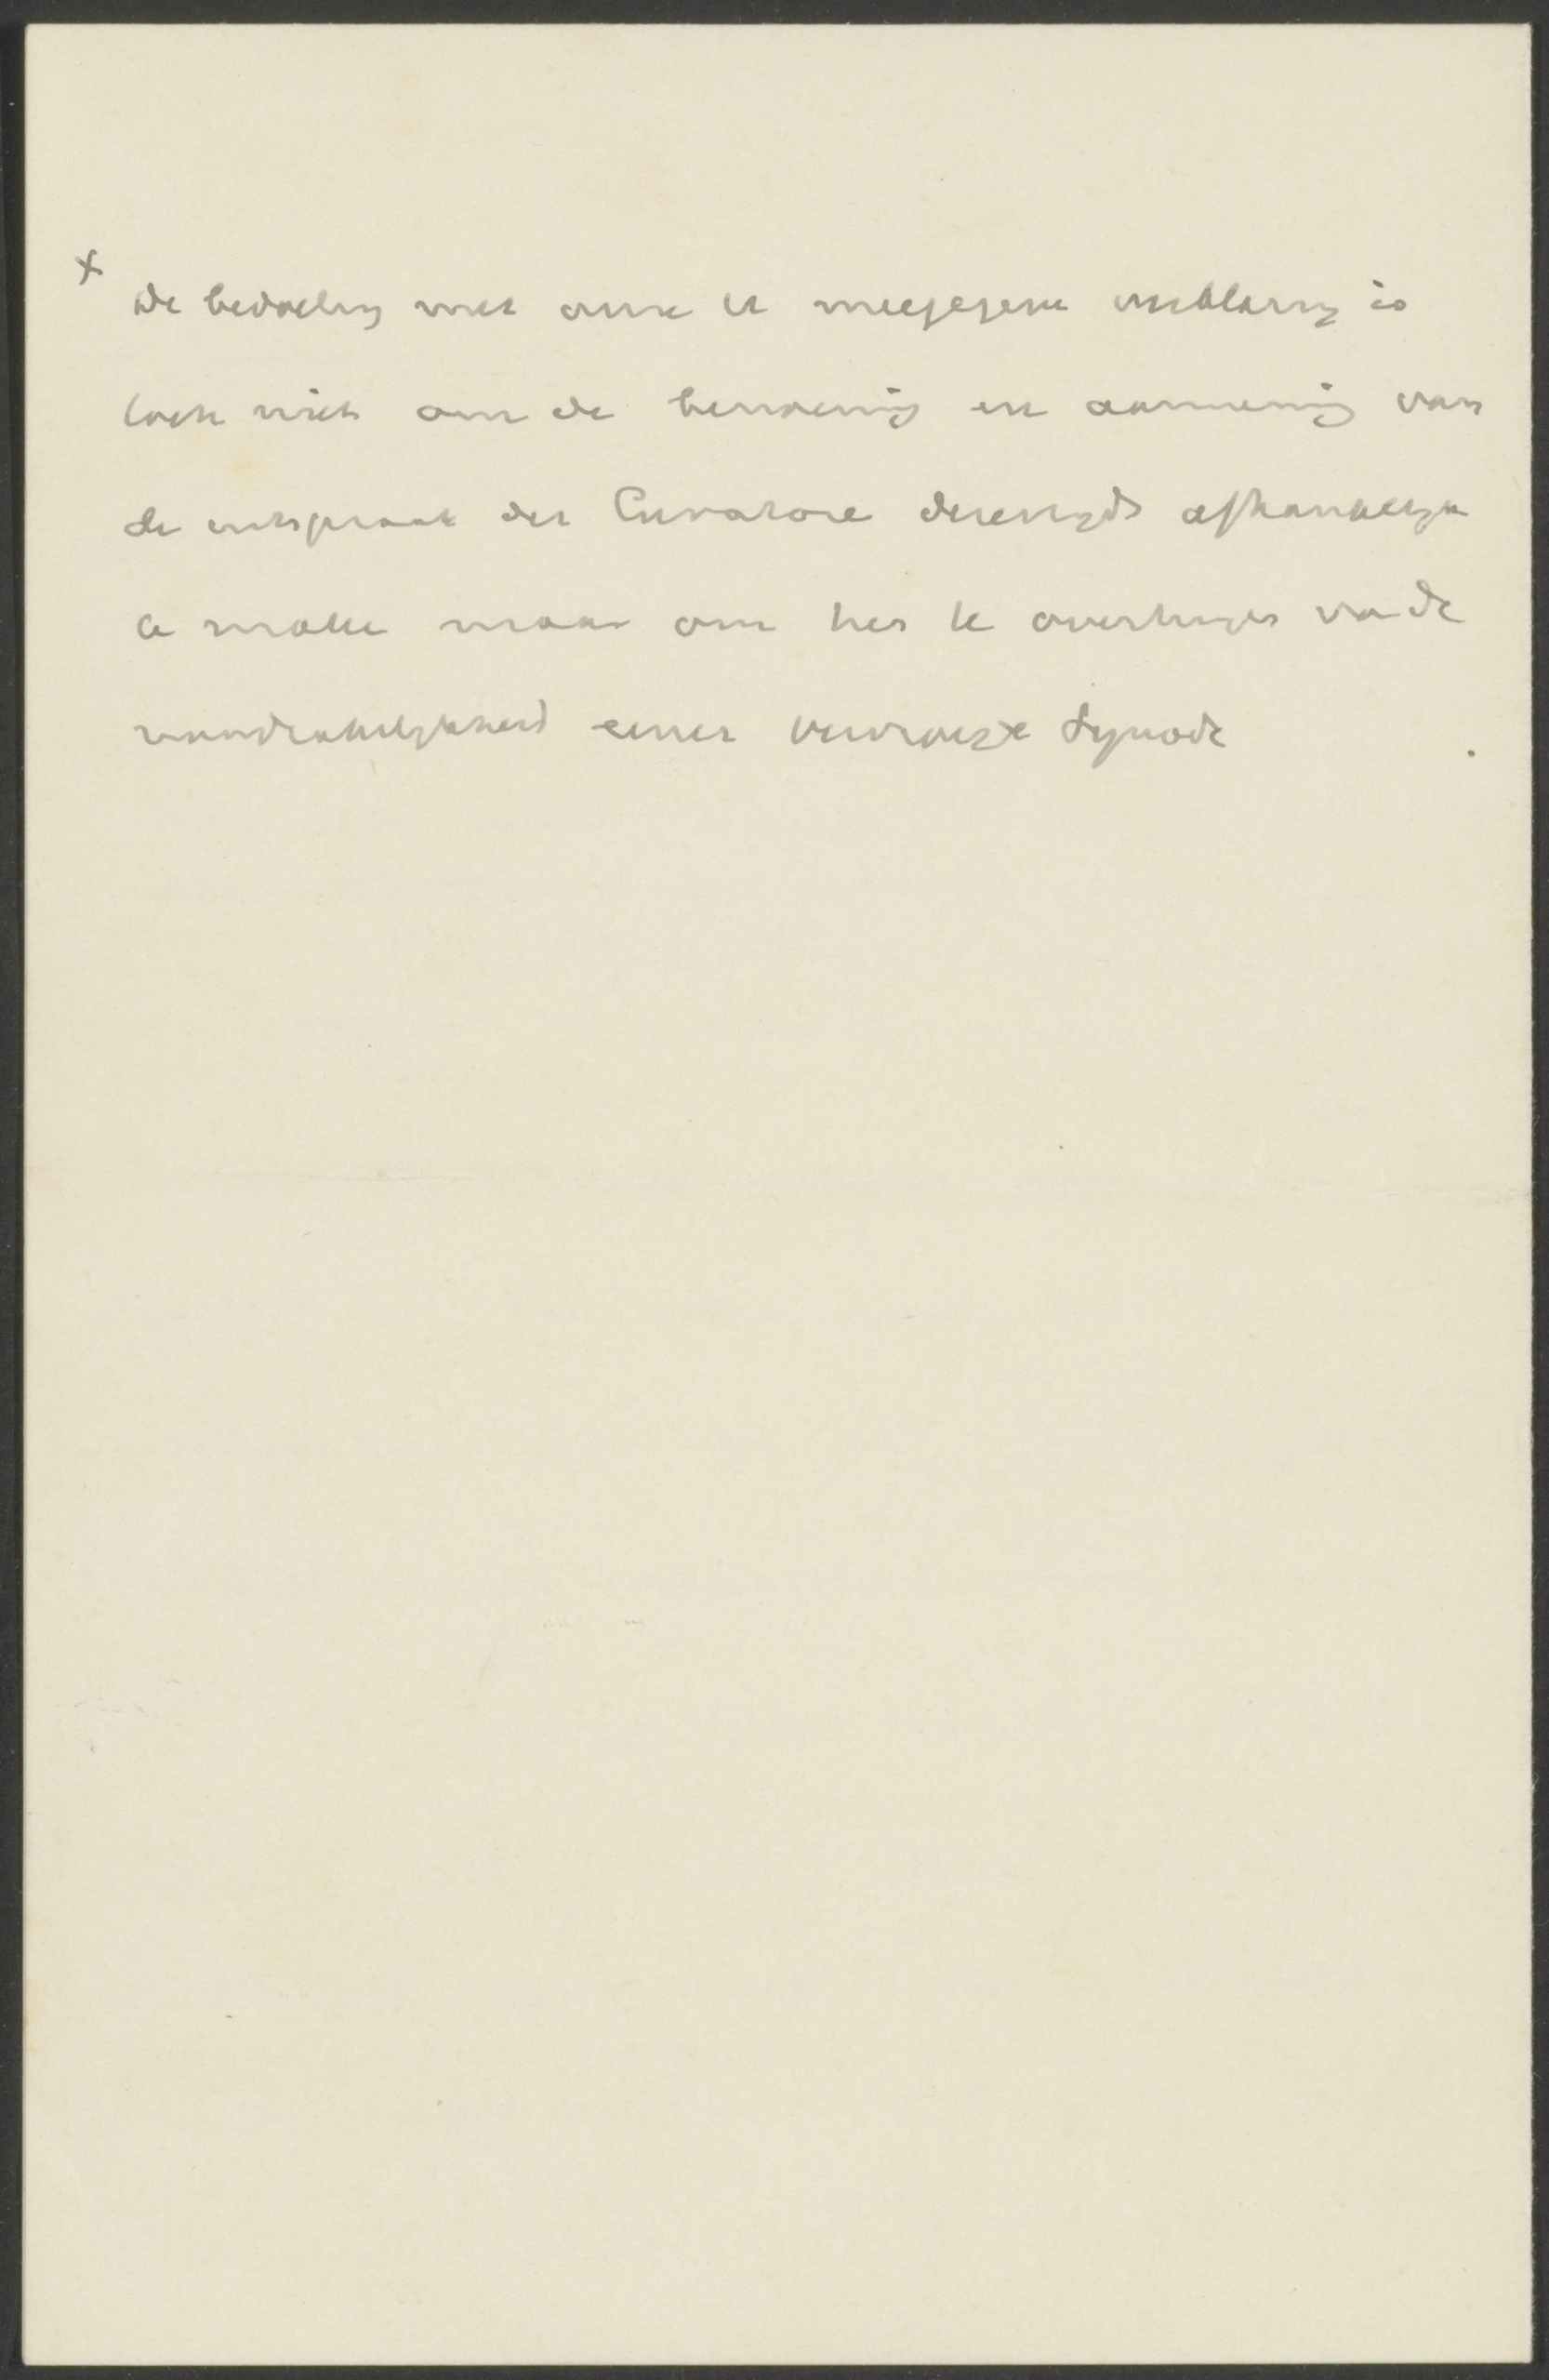 x De bedoeling met onze U meegegeve verklaring is
toch niet om de benoeming en aanneming van
de uitspraak der Curatore derzijds afhankelijk
te make maar om hen te overtuigen va de
noodzakelijkheid eener vervroegde Synode